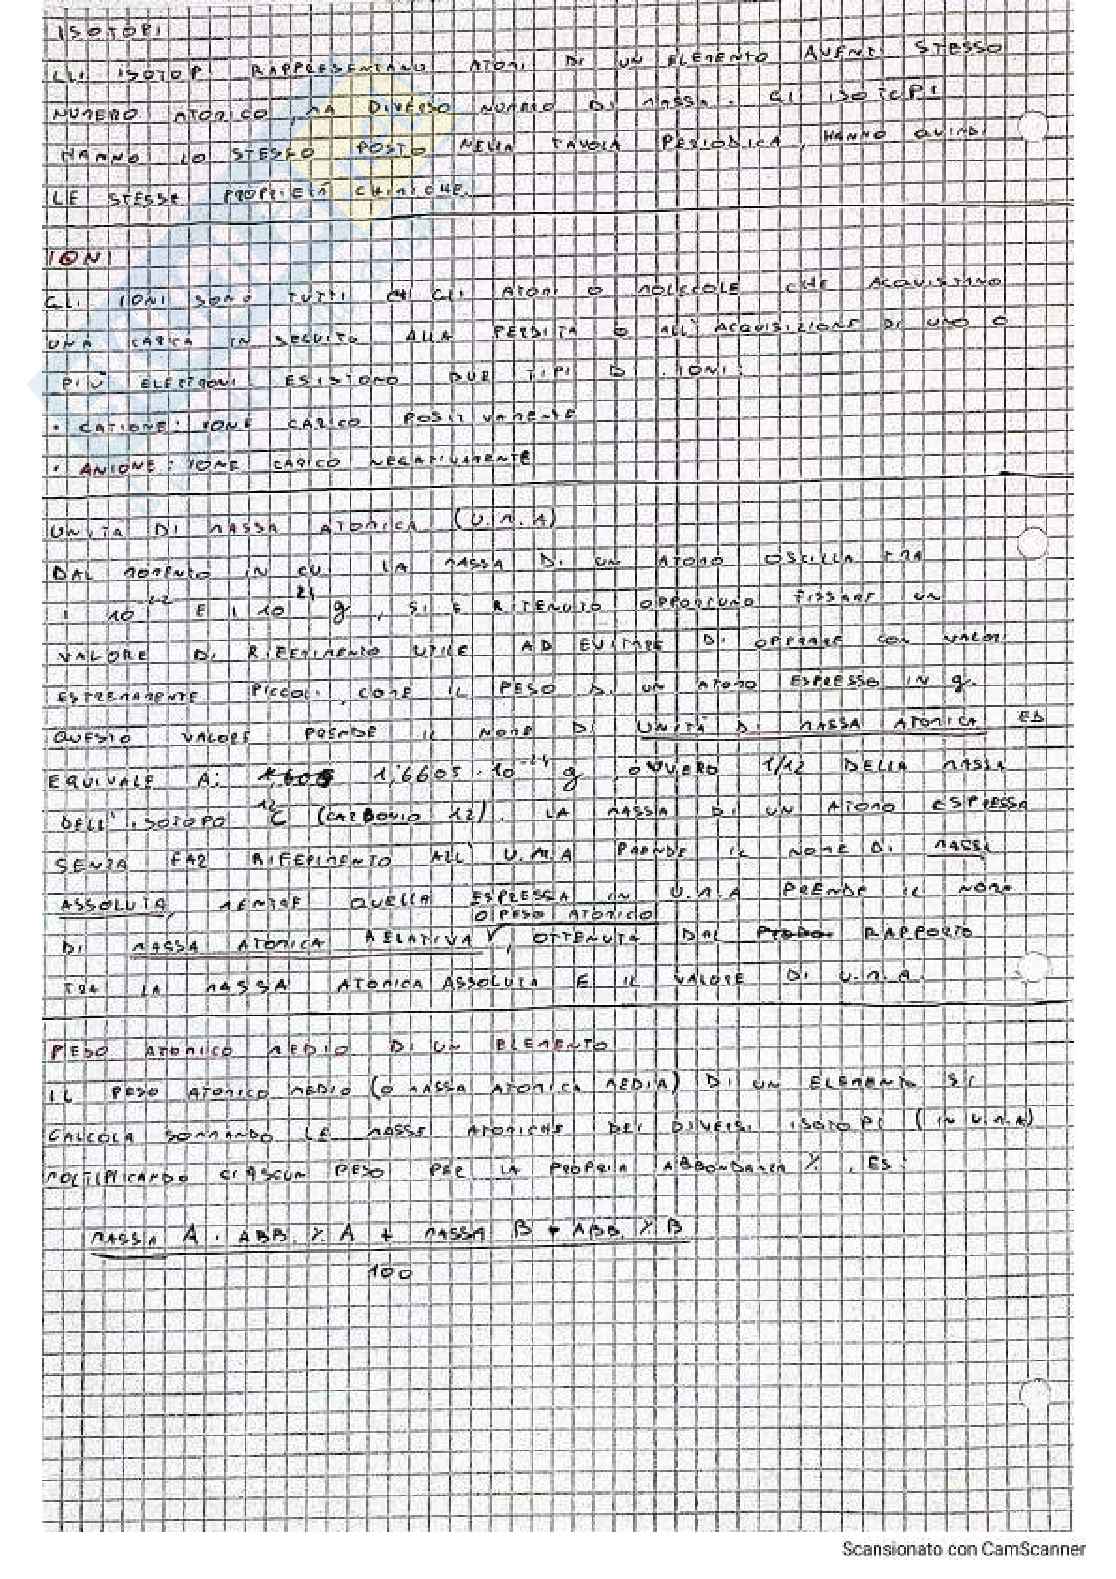 ISOTOPI
GLI ISOTOPI RAPPRESENTANO ATOMI DI UN ELEMENTO AVENTI STESSO
NUMERO ATOMICO, MA DIVERSO NUMERO DI MASSA. GLI ISOTOPI
HANNO LO STESSO POSTO NELLA TAVOLA PERIODICA, HANNO QUINDI
LE STESSE PROPRIETÀ CHIMICHE.
IONI
GLI IONI SONO TUTTI GLI ATOMI O MOLECOLE CHE ACQUISTANO
UNA CARICA IN SEGUITO ALLA PERDITA O ALL'ACQUISIZIONE DI UNO O
PIÙ ELETTRONI. ESISTONO DUE TIPI DI IONI:
• CATIONE: IONE CARICO POSITIVAMENTE
• ANIONE: IONE CARICO NEGATIVAMENTE
UNITÀ DI MASSA ATOMICA (U.M.A)
DAL MOMENTO IN CUI LA MASSA DI UN ATOMO OSCILLA TRA
I 10 E I 10 g, SI È RITENUTO OPPORTUNO FISSARE UN
VALORE DI RIFERIMENTO UTILE AD EVITARE DI OPERARE CON VALORI
ESTREMAMENTE PICCOLI, COME IL PESO DI UN ATOMO ESPRESSO IN g.
QUESTO VALORE PRENDE IL NOME DI UNITÀ DI MASSA ATOMICA ED
EQUIVALE A: 1,6605 · 10⁻²⁴ g, OVVERO 1/12 DELLA MASSA
DELL'ISOTOPO ¹²C (CARBONIO 12). LA MASSA DI UN ATOMO ESPRESSA
SENZA FAR RIFERIMENTO ALL'U.M.A PRENDE IL NOME DI MASSA
ASSOLUTA, MENTRE QUELLA ESPRESSA IN U.M.A PRENDE IL NOME
O PESO ATOMICO
DI MASSA ATOMICA RELATIVA, OTTENUTA DAL RAPPORTO
TRA LA MASSA ATOMICA ASSOLUTA E IL VALORE DI U.M.A.
PESO ATOMICO MEDIO DI UN ELEMENTO
IL PESO ATOMICO MEDIO (O MASSA ATOMICA MEDIA) DI UN ELEMENTO SI
CALCOLA SOMMANDO LE MASSE ATOMICHE DEI DIVERSI ISOTOPI (IN U.M.A)
MOLTIPLICANDO CIASCUN PESO PER LA PROPRIA ABBONDANZA %. ES:
MASSA A · ABB. % A + MASSA B + ABB. % B
100
Scansionato con CamScanner